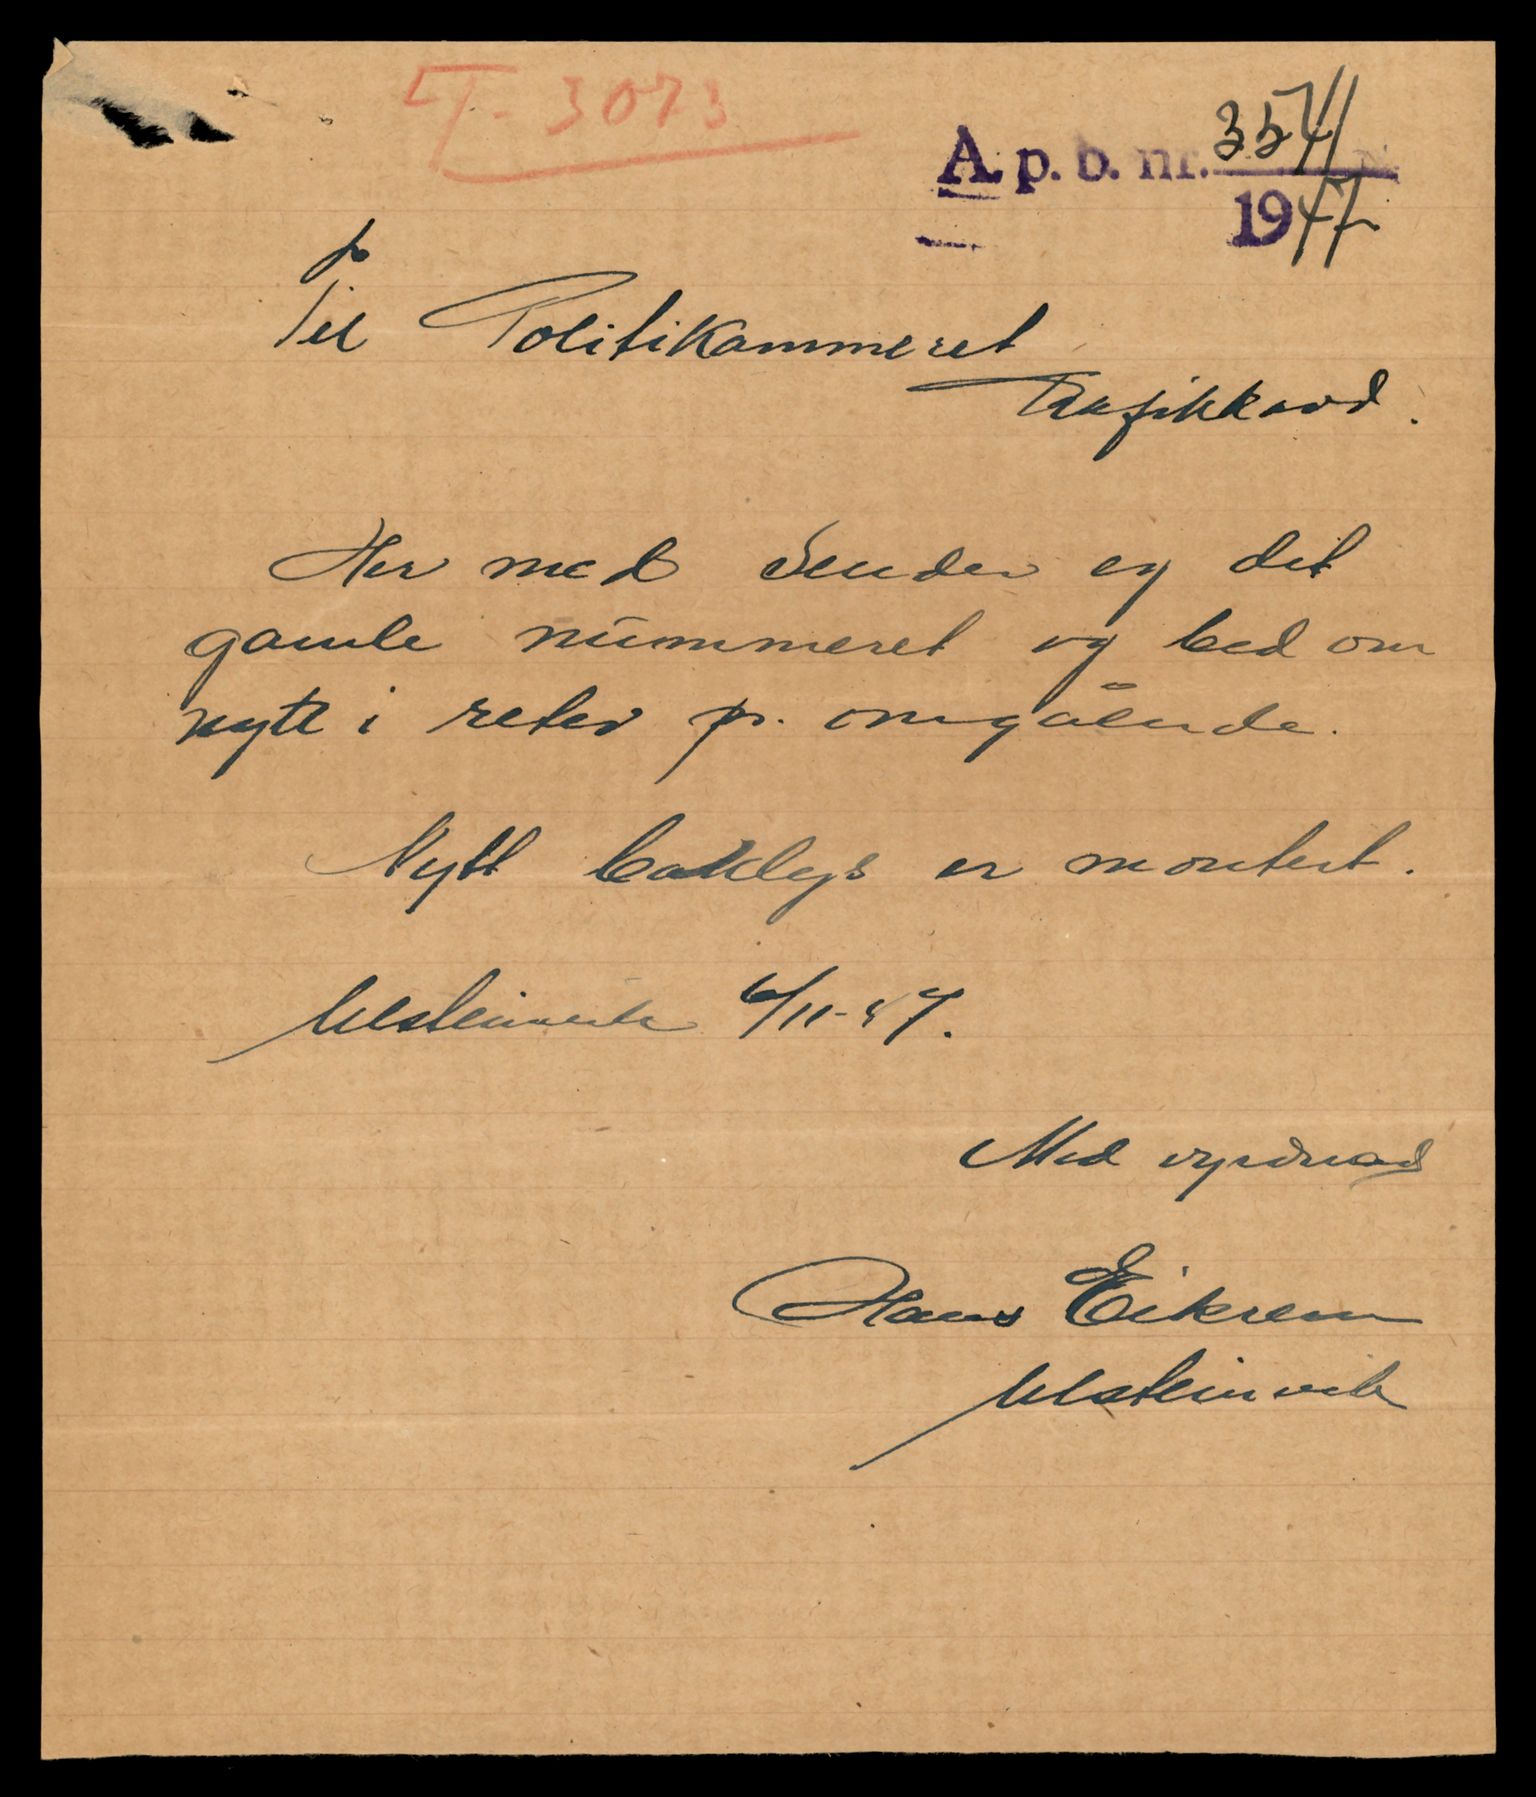 T-3073
A. p. b. nr. 3541
1947
Til Politikammeret
Trafikkavd.
Her med sender eg det
gamle nummeret og bed om
nytt i retur pr. omgående.
Nytt baklys er montert.
Ulsteinvik 6/11-47.
Med vyrdnad
Hans Eikrem
Ulsteinvik